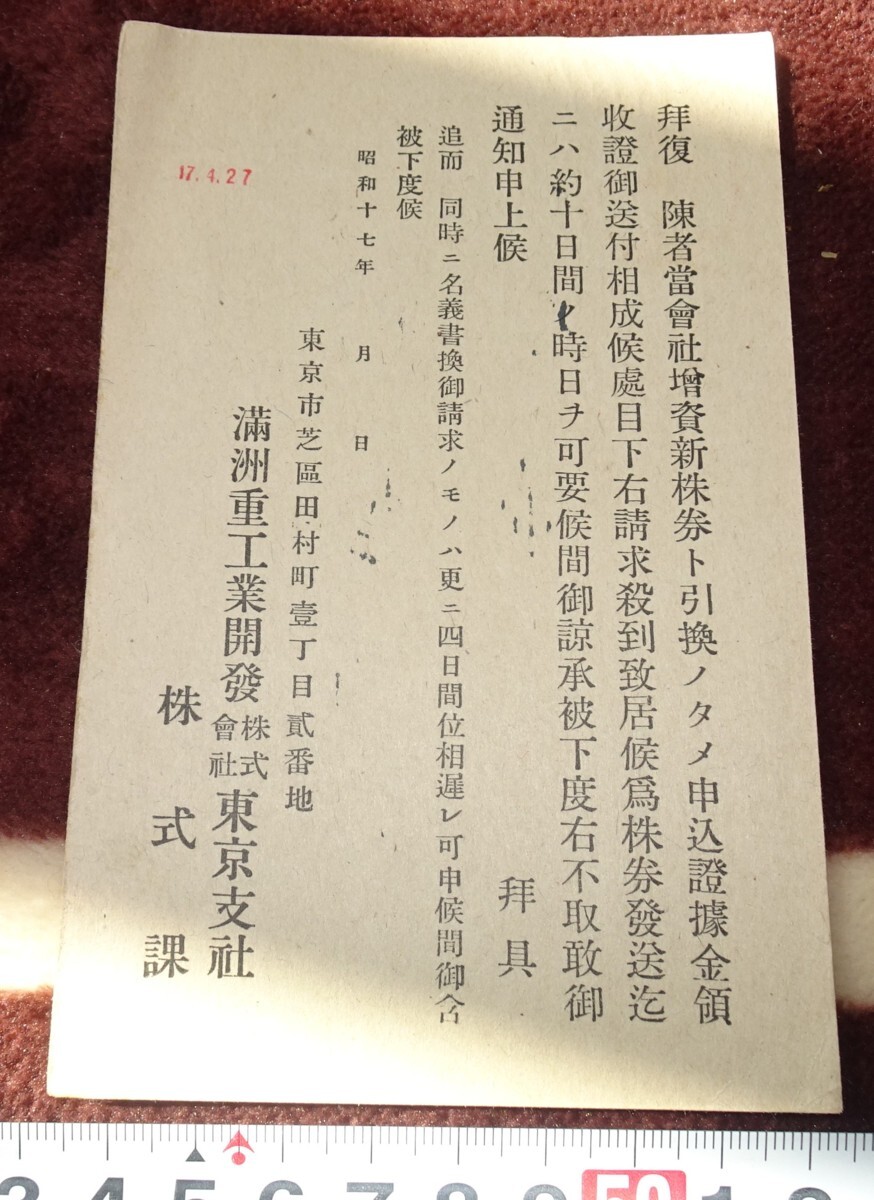 拜復　陳者當會社增資新株券ト引換ノタメ申込證據金領
收證御送付相成候處目下右請求殺到致居候爲株券發送迄
ニハ約十日間ノ時日ヲ可要候間御諒承被下度右不取敢御
通知申上候　拜具
追而　同時ニ名義書換御請求ノモノハ更ニ四日間位相遲レ可申候間御含
被下度候
昭和十七年　月　日
17.4.27
東京市芝區田村町壹丁目貳番地
滿洲重工業開發株式會社東京支社
株式課
3 4 5 6 7 8 9 50 1 2